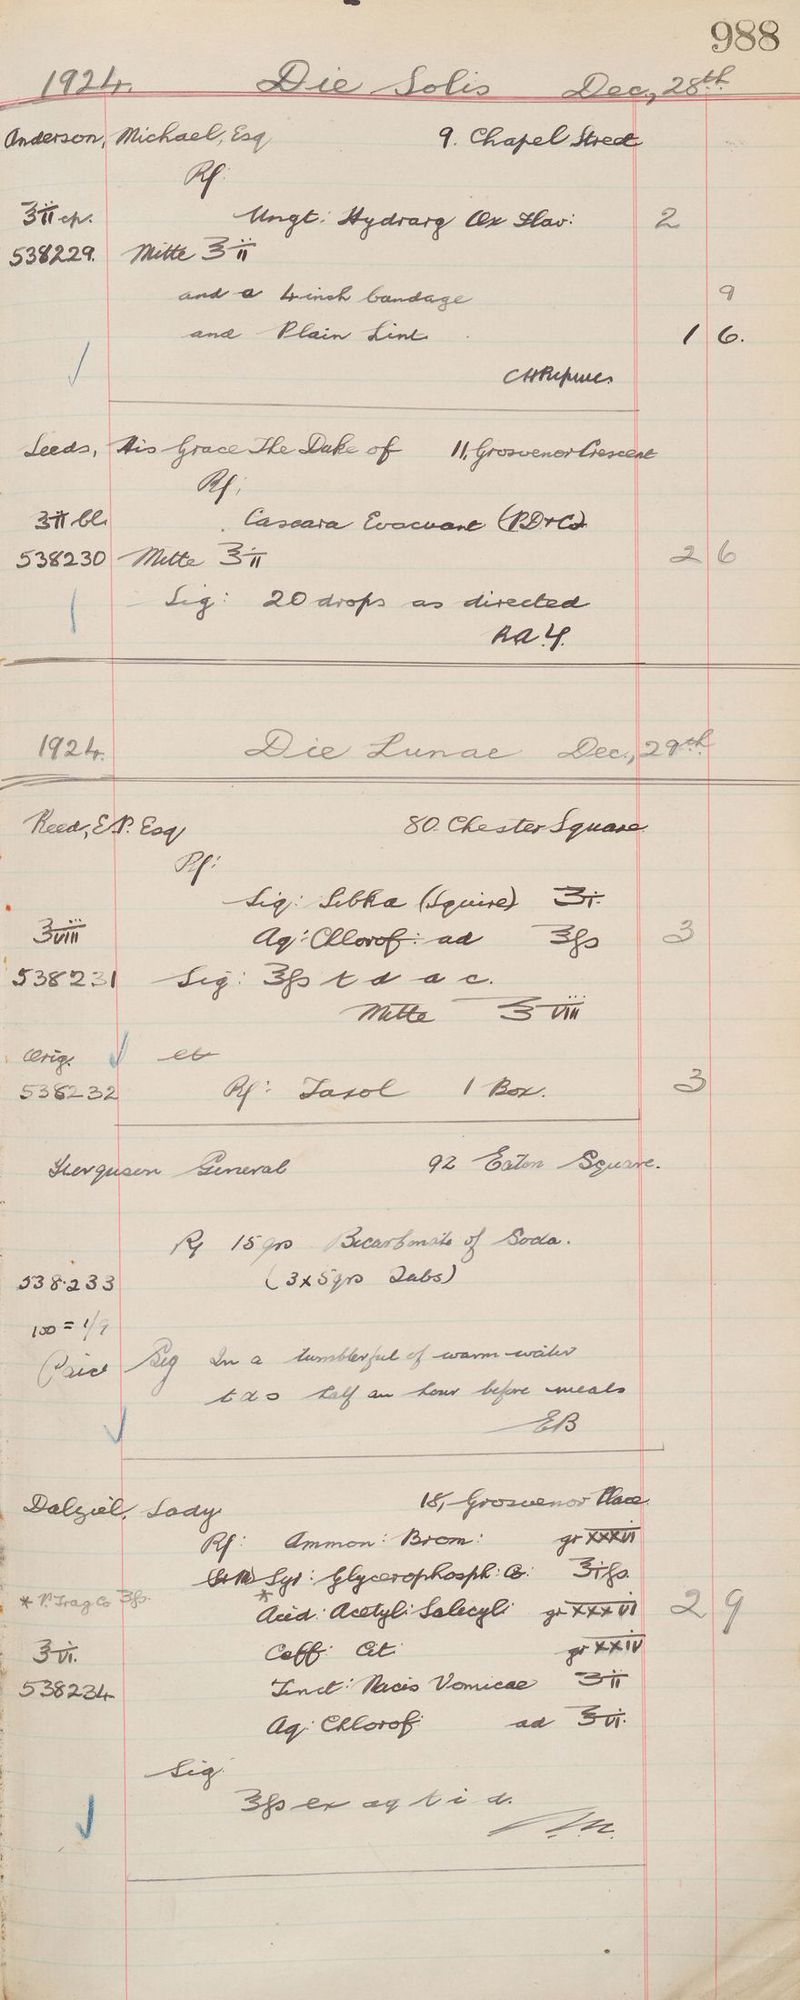 988
1924. Die Solis Dec., 28th
Anderson, Michael, Esq 9. Chapel Street
Rx:
ʒii cp. Ungt: Hydrarg Ox Flav: 2
538229. Mitte ʒii
and a 4 inch bandage 9
and Plain Lint. 1 6.
Leeds, His Grace The Duke of 11, Grosvenor Crescent
Rx:
ʒii bl. Cascara Evacuant (P.D+Co)
538230 Mitte ʒii 2 6
Sig: 20 drops as directed
1924. Die Lunae Dec., 29th
Reed, E.P. Esq 80 Chester Square
Rx:
Liq: Sebka (Squire) ʒi.
℥viii Aq: Chlorof: ad ℥fs 3
538231 Sig: ℥fs t d a c.
Mitte ℥viii
Orig. et
538232 Rx: Taxol 1 Box. 3
Ferguson General 92 Eaton Square.
Rx 15 grs Bicarbonate of Soda.
538233 (3 x 5 grs Tabs)
100 = 1/9
Paid Sig In a tumblerful of warm water
t d s half an hour before meals
EB
Dalziel, Lady 18, Grosvenor Place
Rx: Ammon: Brom: gr xxxvi
Syr: Glycerophosph: Co: ℥ifs
* P. Trag Co ʒfs. * Acid: Acetyl: Salicyli gr xxxvi 2 9
℥vi. Caff: Cit: gr xxiv
538234 Tinct: Nucis Vomicae ʒii
Aq: Chlorof: ad ℥vi.
Sig
℥fs ex aq t i d.